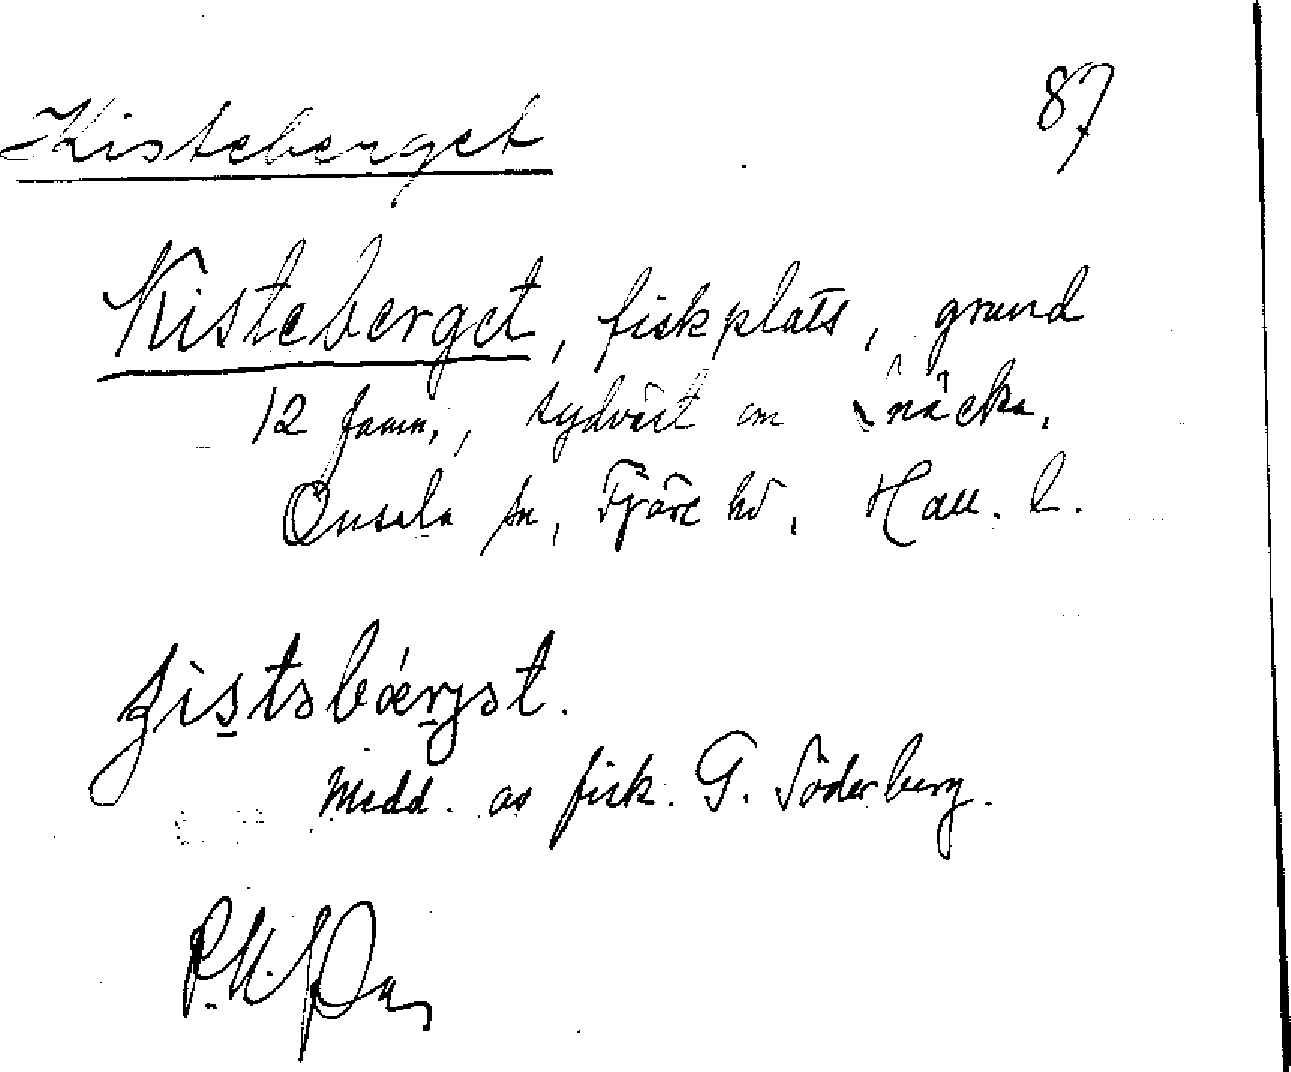 87
Kisteberget
Kisteberget, fiskplats, grund
12 famn., sydväst om Snäcka.
Onsala sn, Fjäre hd, Hall. l.
Medd. av fisk. G. Söderberg.